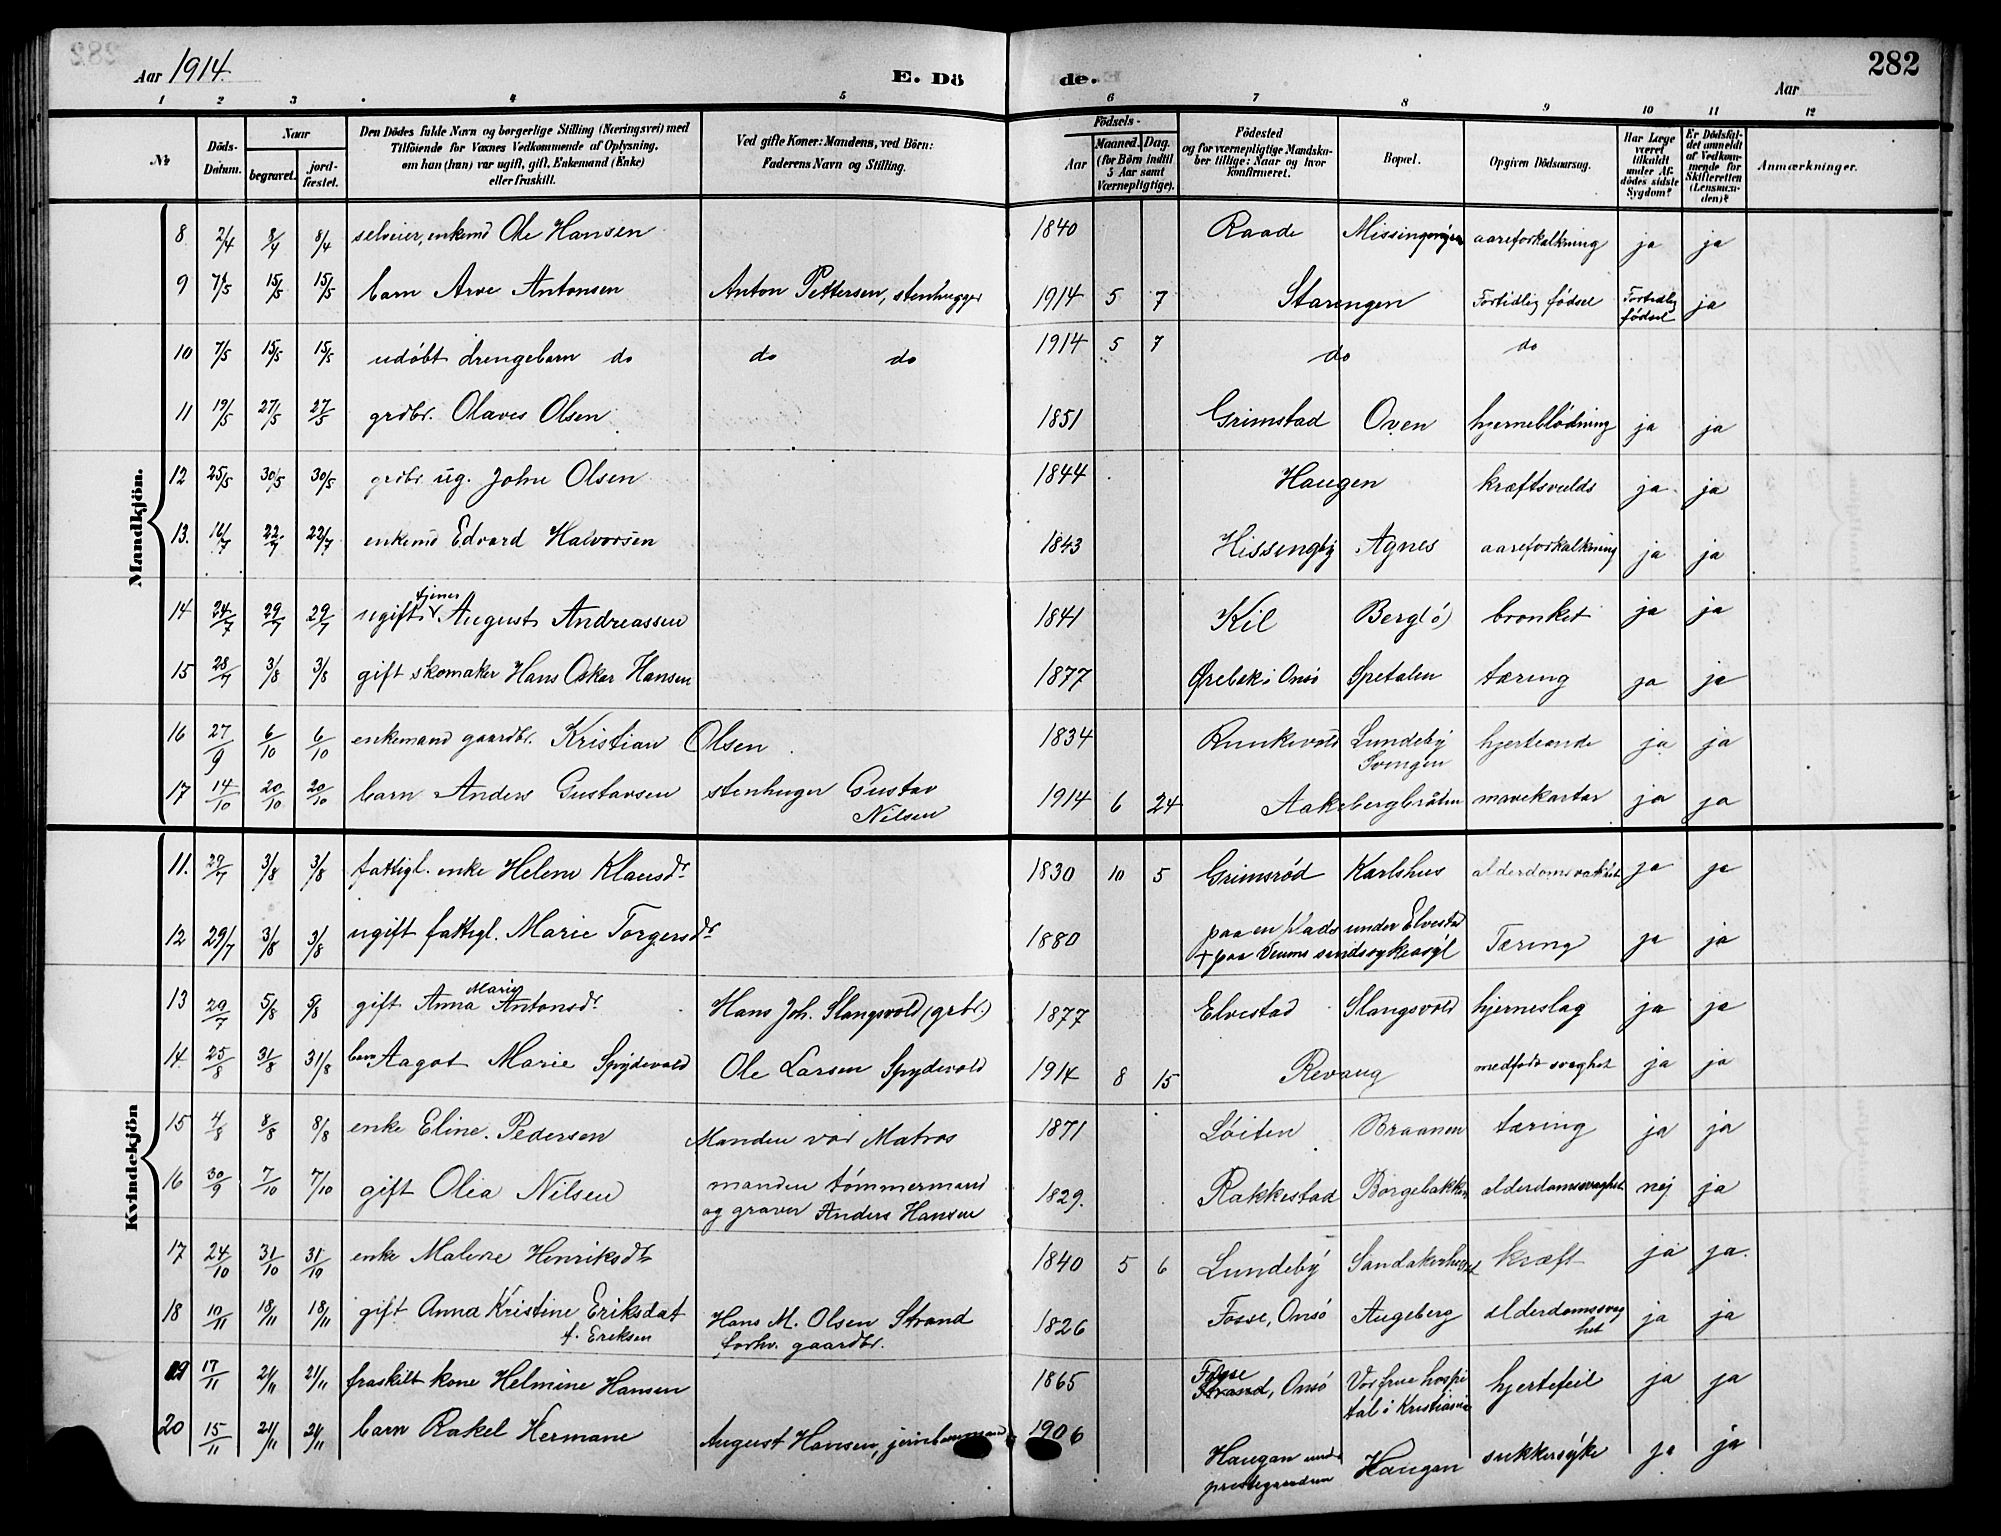 282
Aar 1914. E. Dö de. Aar
1 2 3 4 5 6 7 8 9 10 11 12
No Döds-Datum. Naar begravet. jord-fæstet. Den Dödes fulde Navn og borgerlige Stilling (Næringsvei) med Tilföiende for Voxnes Vedkommende af Oplysning, om han (hun) var ugift, gift, Enkemand (Enke) eller fraskilt. Ved gifte Koner: Mandens, ved Börn: Faderens Navn og Stilling. Födsels- Aar Maaned. Dag. (for Börn indtil 5 Aar samt Værnepligtige). Födested og for værnepligtige Mandskaber tillige: Naar og hvor konfirmeret. Bopæl. Opgiven Dödsaarsag. Har Læge været tilkaldt under Afdödes sidste Sygdom? Er Dödsfaldet anmeldt af Vedkommende for Skifteretten (Lensmanden)? Anmærkninger.
Mandkjön.
8 2/4 8/4 8/4 selveier, enkemd Ole Hansen 1840 Raade aareforkalkning ja ja
9 7/5 15/5 15/5 barn Arve Antonsen Anton Pettersen, stenhugger 1914 5 7 Starengen Fortidlig fødsel Fortidlig fødsel ja
10 7/5 15/5 15/5 udöbt drengebarn do do do 1914 5 7 do do
11 19/5 27/5 27/5 grdbr. Olaves Olsen 1851 Grimstad Oven hjerneblödning ja ja
12 25/5 30/5 30/5 grdbr ug. John Olsen 1844 Haugen kræftsvulds ja ja
13. 16/7 22/7 22/7 enkemd Edvard Halvorsen 1843 Hissengby Agnes aareforkalkning ja ja
14 24/7 29/7 29/7 ugift tjener August Andreassen 1841 Kil Berglö) bronket ja ja
15 28/7 3/8 3/8 gift skomaker Hans Oskar Hansen 1877 Ørebek i Onsö Spetalen tæring ja ja
16 27/9 6/10 6/10 enkemand gaardbr. Kristian Olsen 1834 Runkevold Lundeby Svengen hjerteonde ja ja
17 14/10 20/10 20/10 barn Anders Gustavsen stenhuger Gustav Nilsen 1914 6 24 Aakebergbråten mavekatar ja ja
Kvindekjön
11. 29/7 3/8 3/8 fattigl. enke Helene Klausdr 1830 10 5 Grimsröd Karlshus ja ja
12 29/7 3/8 3/8 ugift fattigl. Marie Torgersdr 1880 paa en Plads under Elvestad + paa Veums sindssykeasyl Tæring ja ja
13 29/7 5/8 5/8 gift Anna Marie Antonsdr. Hans Joh. Slangsvold (grbr.) 1877 Elvestad Slangsvold hjerneslag ja ja
14. 25/8 31/8 31/8 barn Aagot Marie Spydevold Ole Larsen Spydevold 1914 8 15 Revaug medfödt svaghet ja ja
15 4/8 8/8 8/8 enke Eline. Pedersen Manden var Matros 1871 Löiten Braanen tæring ja ja
16 30/9 7/10 7/10 gift Olea Nilsen manden tömmermand og graver Anders Hansen 1829. Rakkestad Borgebakken alderdomssvaghet nej ja
17 24/10 31/10 31/10 enke Malene Henriksdtr 1840 5 6 Lundeby kræft ja ja.
18 10/11 18/11 18/11 gift Anna Kristine Eriksdat f. Eriksen Hans M. Olsen Strand forhv. gaardbr. 1826 Fosse, Onsö Augeberg alderdomssvaghet ja ja
19 17/11 21/11 21/11 fraskilt kone Helmine Hansen 1865 Fosse Strand, Onsö Vor frue hospital i Kristiania hjertefeil ja ja
20 15/11 21/11 21/11 barn Rakel Hermane August Hansen, 1906 Haugan under prestegaarden Haugan sukkersyke ja ja